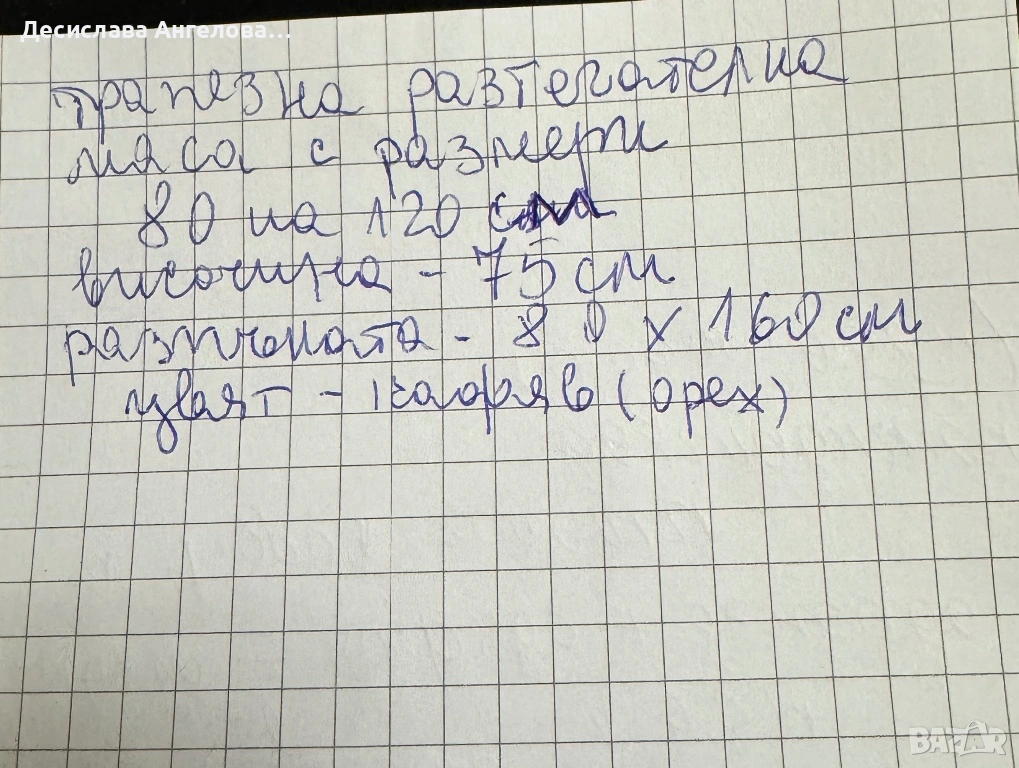 Десислава Ангелова...
трапезна разтегателна
маса с размери
80 на 120 см
височина - 75 cm
разпъната - 80 x 160 см
цвят - кафряв (орех)
BAZAR